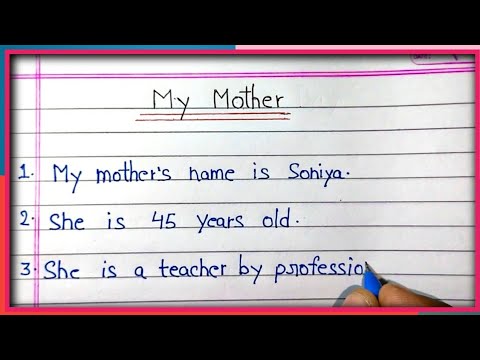 My Mother
1. My mother's name is Soniya.
2. She is 45 years old.
3. She is a teacher by professio